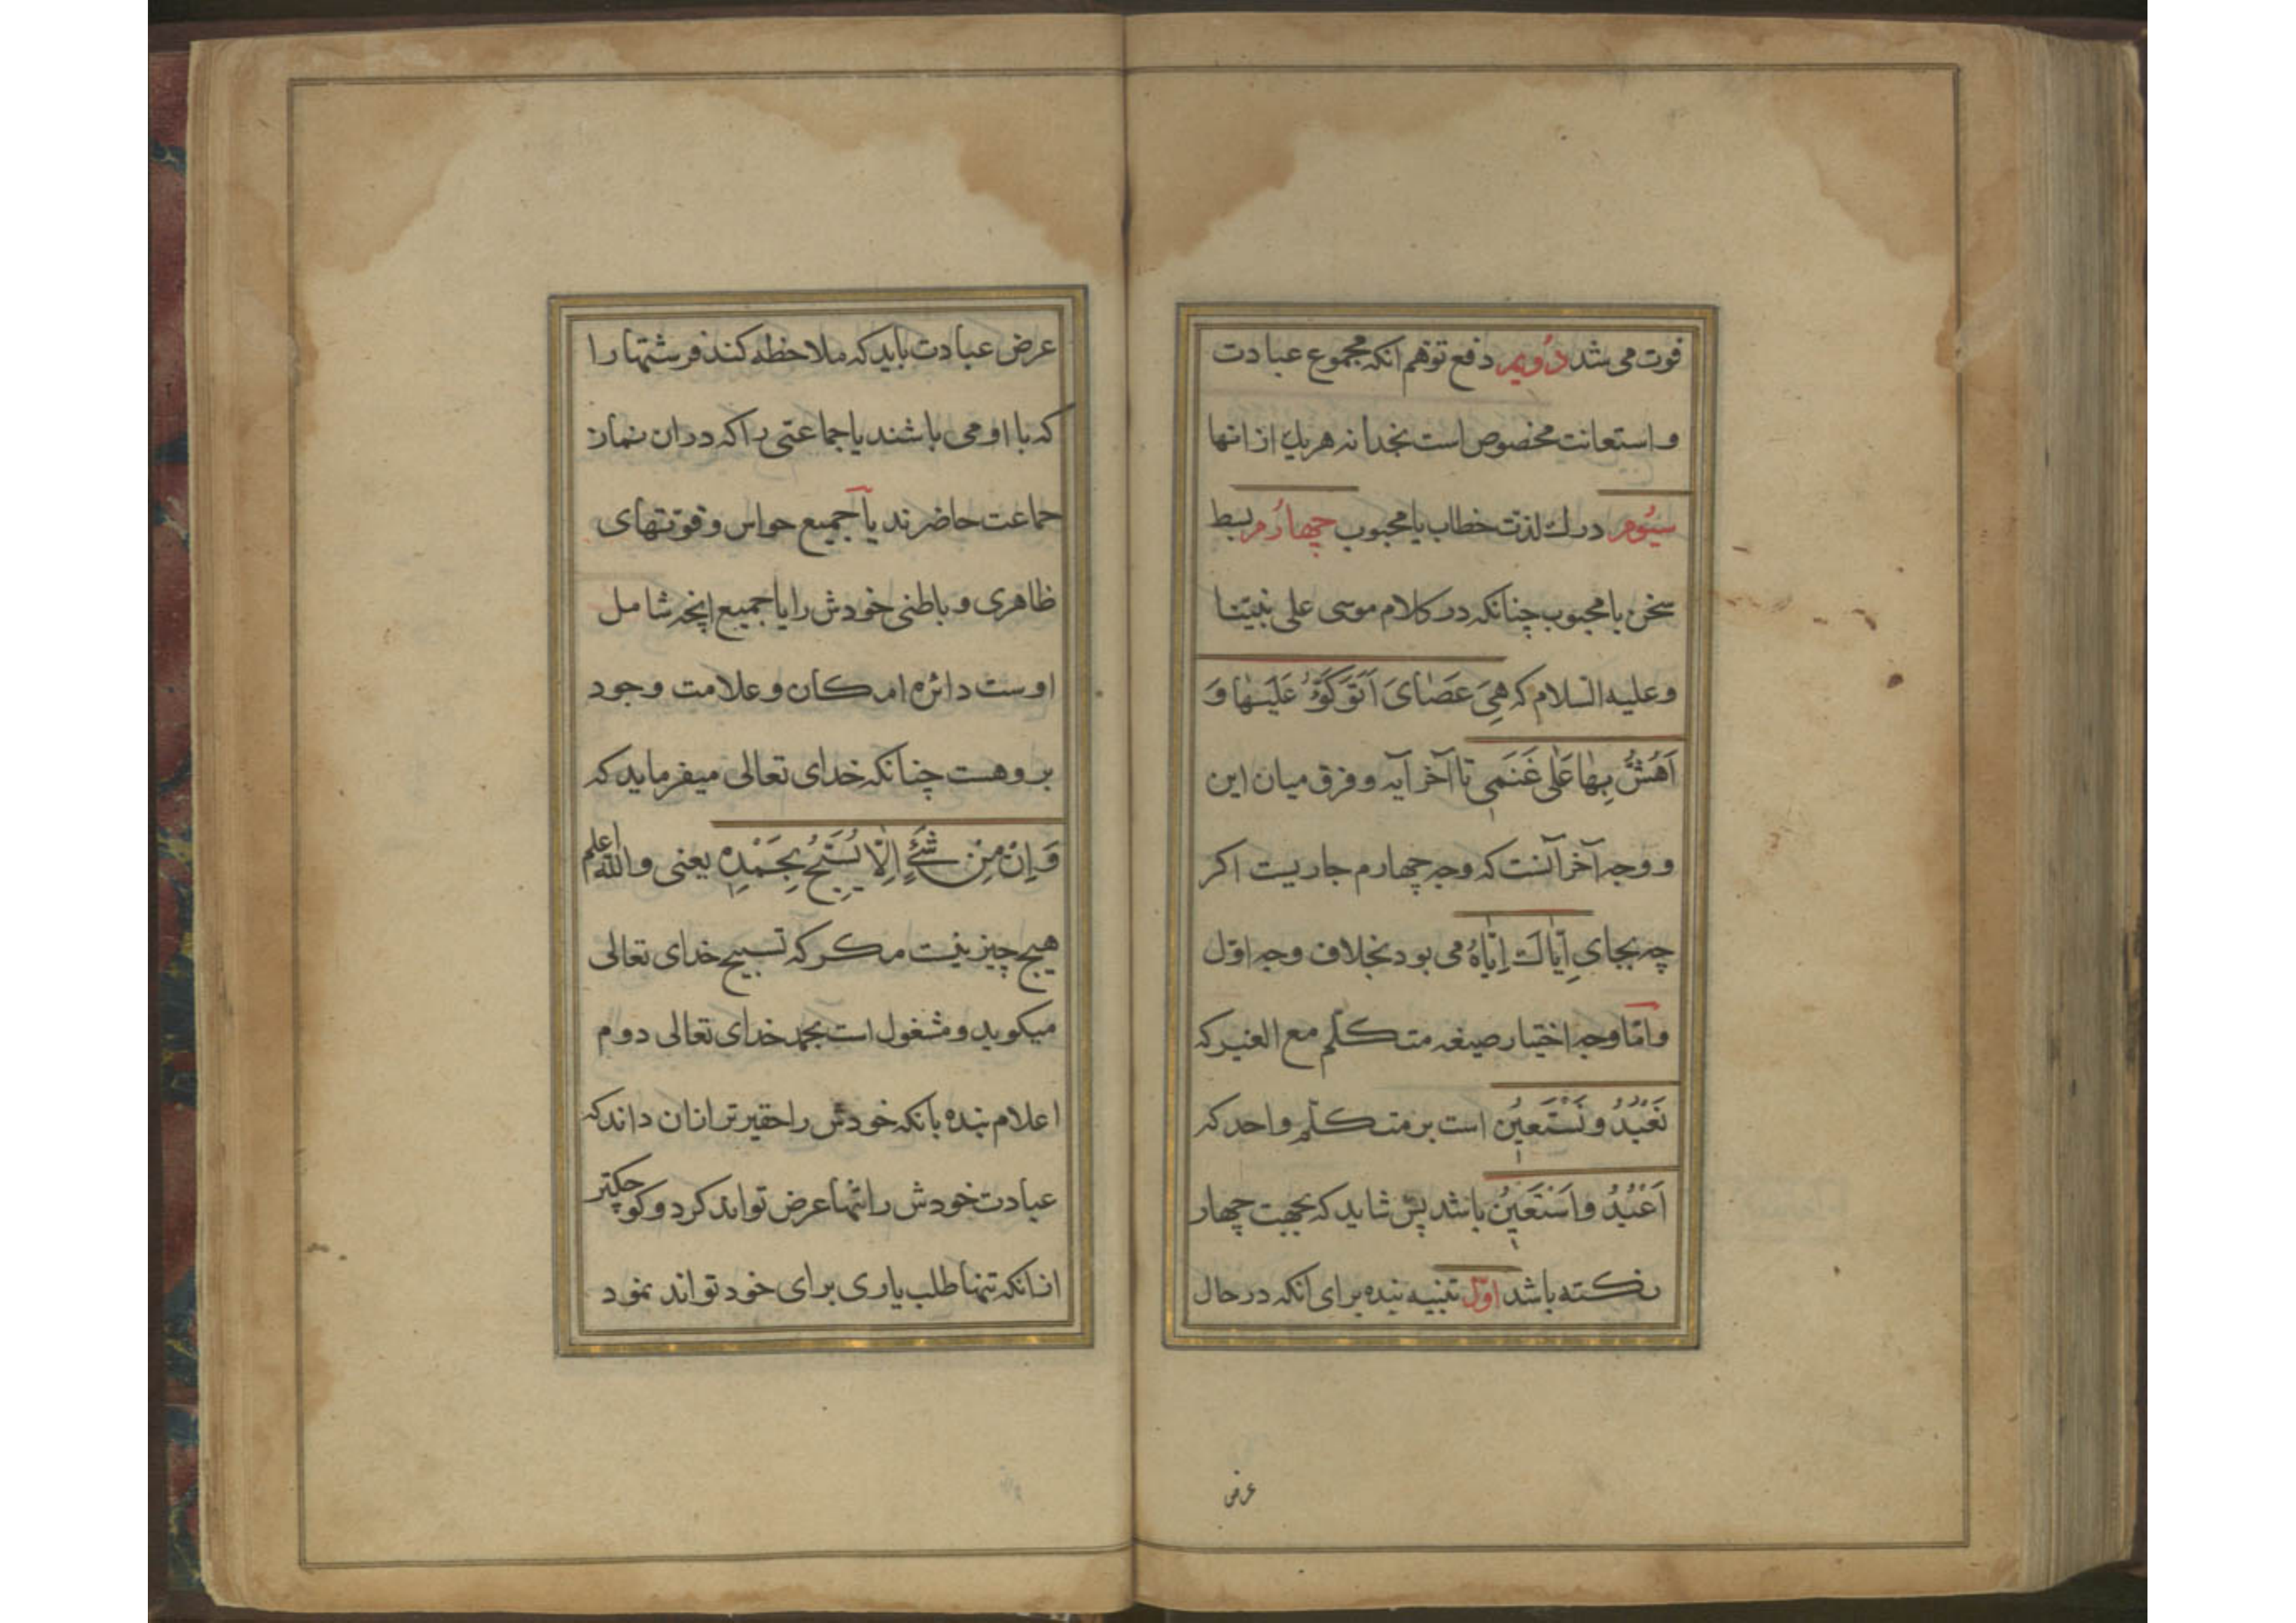 فوت می شد دُویم دفع توهم انکه مجموع عبادت
و استعانت مخصوص است بخدا نه هر یك از انها
سیُوم درك لذت خطاب با محبوب چهارُم بسط
سخن با محبوب چنانکه در کلام موسی علی نبیّنا
و علیه السّلام که هِیَ عَصَایَ اَتَوَکَّؤُ عَلَیْهَا وَ
اَهُشُّ بِهَا عَلٰی غَنَمِی تا آخر آیه و فرق میان این
و وجه آخر آنست که وجه چهارم جاریست اکر
چه بجای اِیّاكَ اِیّاهُ می بود بخلاف وجه اوّل
و امّا وجه اختیار صیغه متکلّم مع الغیر که
نَعْبُدُ و نَسْتَعِینُ است بر متکلّم واحد که
اَعْبُدُ و اَسْتَعِینُ باشد پس شاید که بجهت چهار
نکته باشد اوّل تنبیه بنده برای انکه در حال
عرض
عرض عبادت باید که ملاحظه کند فرشتها را
که با او می باشند یا جماعتی را که در ان نماز
جماعت حاضرند یا جمیع حواس و قوّتهای
ظاهری و باطنی خودش را یا جمیع انچه شامل
اوست دائره امکان و علامت وجود
بر و هست چنانکه خدای تعالی میفرماید که
وَ اِنْ مِنْ شَیْءٍ اِلّا یُسَبِّحُ بِحَمْدِهِ یعنی والله اعلم
هیچ چیز نیست مکر که تسبیح خدای تعالی
میکوید و مشغول است بحمد خدای تعالی دوم
اعلام بنده بانکه خودش را حقیر تر ازان داند که
عبادت خودش را تنها عرض تواند کرد و کوچکتر
ازانکه تنها طلب یاری برای خود تواند نمود